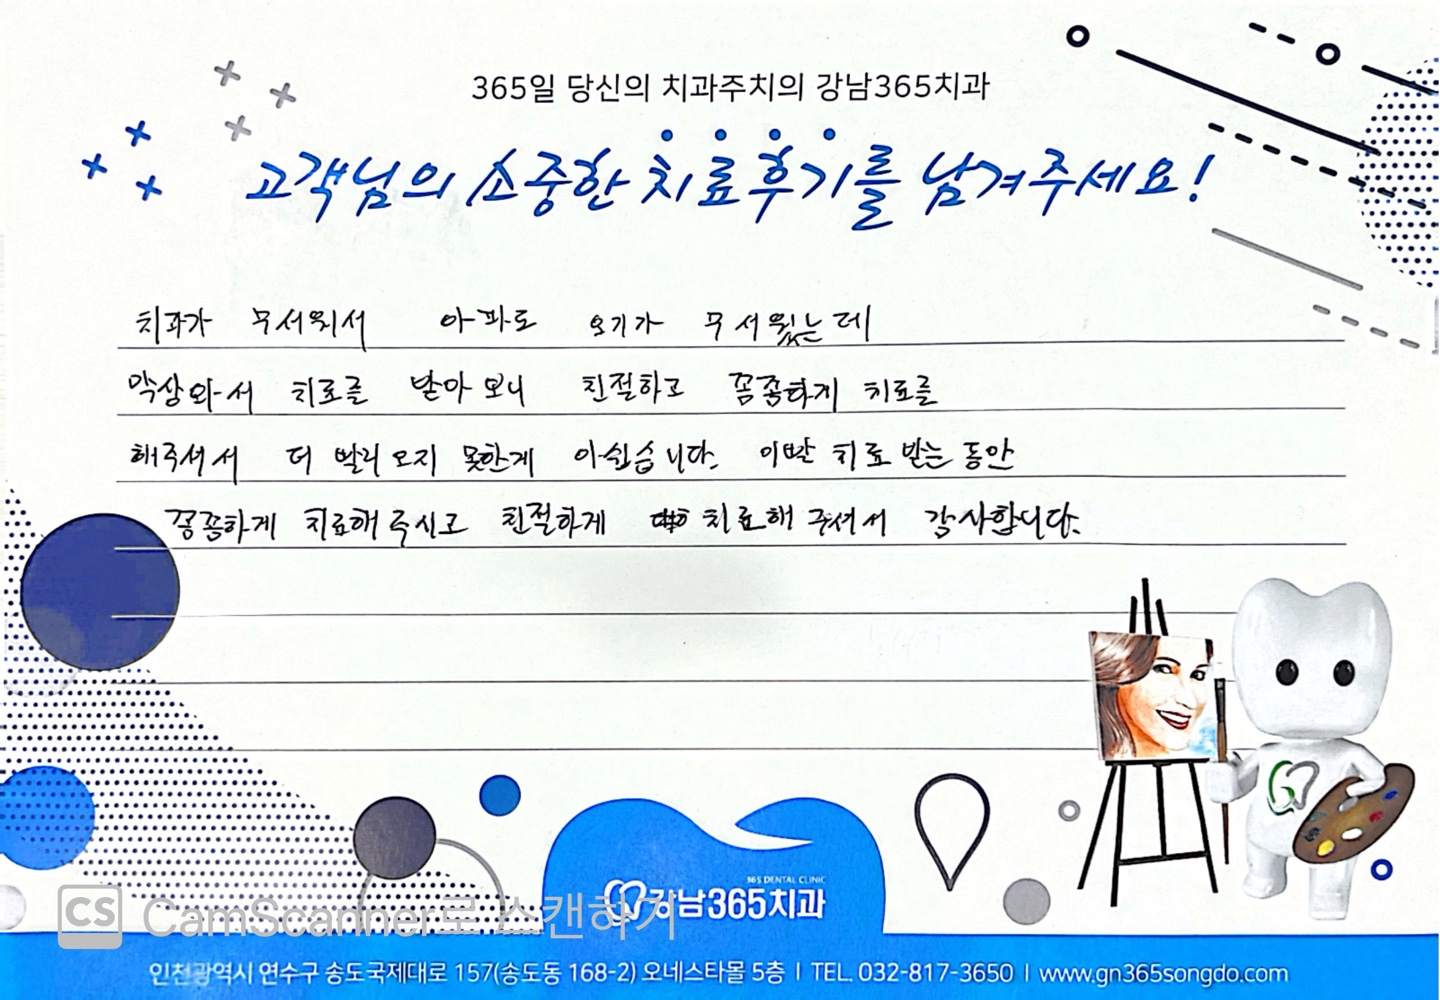 365일 당신의 치과주치의 강남365치과
고객님의 소중한 치료후기를 남겨주세요!
치과가 무서워서 아파도 오기가 무서웠는데
막상와서 치료를 받아보니 친절하고 꼼꼼하게 치료를
해주셔서 더 빨리 오지 못한게 아쉽습니다. 이빨 치료 받는 동안
꼼꼼하게 치료해주시고 친절하게 치료해 주셔서 감사합니다.
365 DENTAL CLINIC
강남365치과
CS CamScanner로 스캔하기
인천광역시 연수구 송도국제대로 157(송도동 168-2) 오네스타몰 5층 l TEL. 032-817-3650 l www.gn365songdo.com